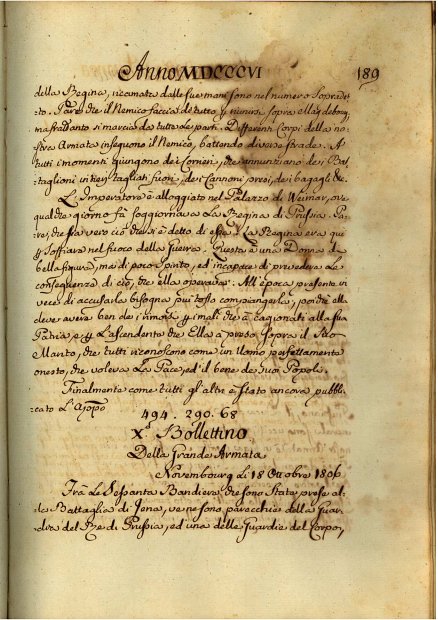 Anno MDCCCVI 189
della Regina, ricamatta dalle sue mani sono nel numero Sopradet-
to. Pare che il Nemico faccia di tutto
ma frattanto si marcia da tutte le parti. Differenti Corpi della no-
stra Armata inseguono il Nemico, battendo diverse strade. A
tutti i momenti giungono dei Corrieri, che annunziano dei Bat-
taglioni intieri tagliati fuori, dei Cannoni presi, dei bagagli &c.
L'Imperatore è alloggiato nel Palazzo di Weimar, ove
qualche giorno fa soggiornava La Regina di Prussia. Pa-
re, che sia vero ciò che si è detto di essa. La Regina era qui
p Soffiare nel fuoco della Guerra. Questa è una Donna di
bella figura, mai di poco Spirito, ed incapace di prevedere Le
conseguenze di ciò, che ella operava: All'epoca presente in
vece di accusarla bisogna piuttosto compiangerla, poichè ella
deve avere ben dei rimorsi p i mali che à cagionati alla sua
Patria, e p L'ascendente che Ella à preso sopra il Rè
Marito, che tutti riconoscono come un Uomo perfettamente
onesto, che voleva La Pace, ed il bene de suoi Popoli.
Finalmente come tutti gl'altri è stato ancora pubbli-
cato L'
494. 290. 68
X.º Bollettino
Della Grande Armata
Novembourg Li 18 Ottobre 1806
Trà Le Sessanta Bandiere che sono State prese al-
la Battaglia di Jena, ve ne sono parecchie della Guar-
dia del Rè di Prussia, ed una delle Guardie del Corpo,